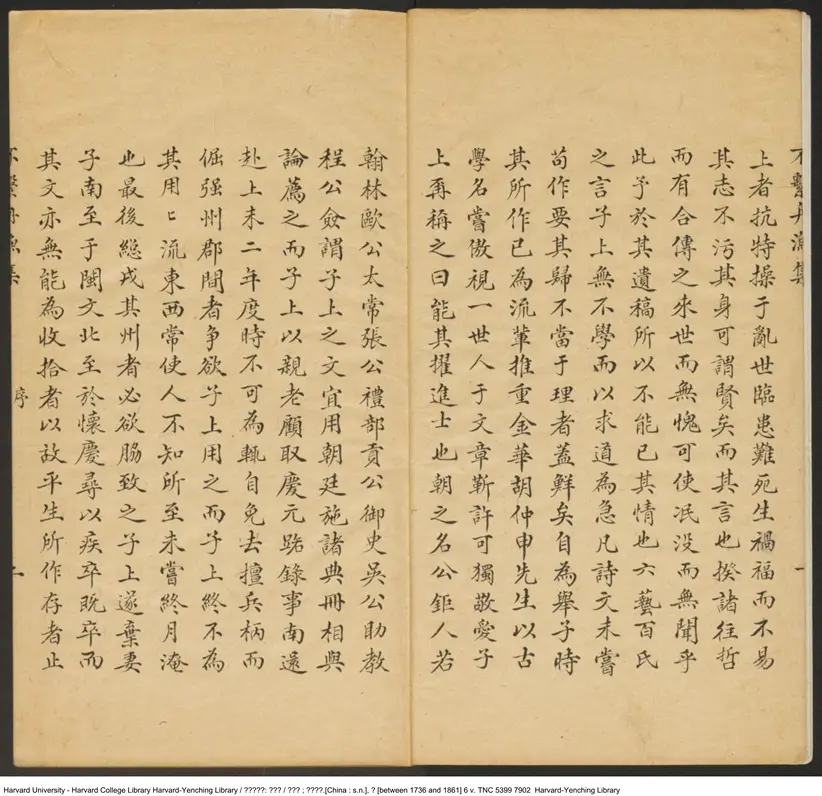 不繫舟漁集
一
上者抗特操于亂世臨患難死生禍福而不易
其志不污其身可謂賢矣而其言也揆諸往哲
而有合傳之來世而無愧可使冺没而無聞乎
此予於其遺稿所以不能已其情也六藝百氏
之言子上無不學而以求道為急凡詩文未嘗
苟作要其歸不當于理者葢鮮矣自為舉子時
其所作已為流輩推重金華胡仲申先生以古
學名嘗傲視一世人于文章靳許可獨敬愛子
上再稱之曰能其擢進士也朝之名公鉅人若
翰林歐公太常張公禮部貢公御史吳公助教
程公僉謂子上之文宜用朝廷施諸典冊相與
論薦之而子上以親老願取慶元路錄事南還
赴上未二年度時不可為輒自免去擅兵柄而
倔强州郡間者争欲子上用之而子上終不為
其用匕流東西常使人不知所至未嘗終月淹
也最後總戎其州者必欲脇致之子上遂棄妻
子南至于閩文北至於懷慶尋以疾卒既卒而
其文亦無能為收拾者以故平生所作存者止
不繫舟漁集
序
一
Harvard University - Harvard College Library Harvard-Yenching Library / ?????: ??? / ??? ; ????.[China : s.n.], ? [between 1736 and 1861] 6 v. TNC 5399 7902 Harvard-Yenching Library